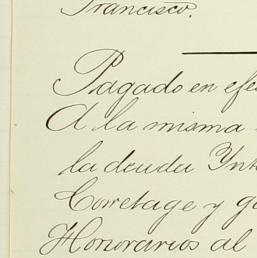 Francisco.
Pagado en efe
A la misma
la deuda Ynt
Corretage y g
Honorarios al